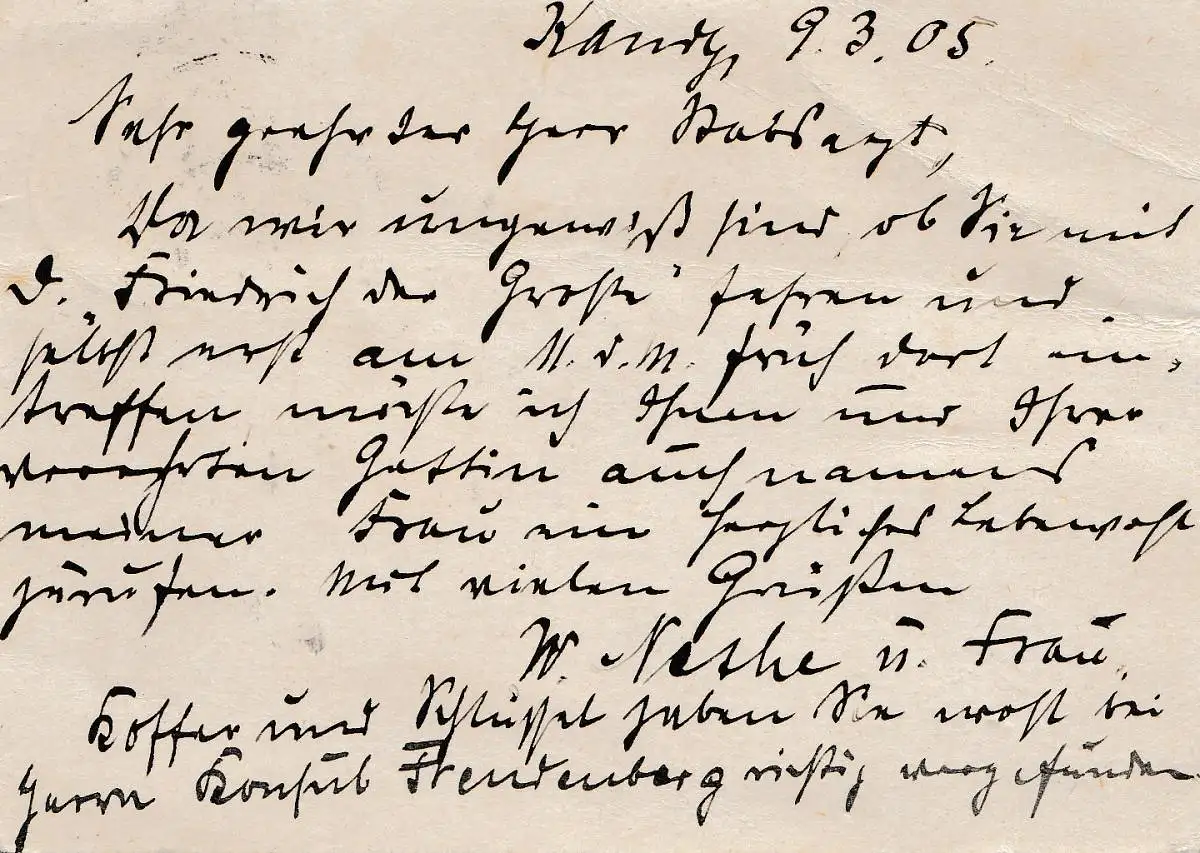 Kandy, 9.3.05.
Sehr geehrter Herr Stabsarzt,
Da wir ungewiß sind, ob Sie mit
D. "Friedrich der Große" fahren und
selbst erst am 11. d. M. früh dort ein-
treffen möchte ich Ihnen und Ihrer
verehrten Gattin auch namens
meiner Frau ein herzliches Lebewohl
zurufen. Mit vielen Grüßen
W. Nethe u. Frau.
Koffer und Schlüssel haben Sie wohl bei
Herrn Konsul Freudenberg richtig vorgefunden